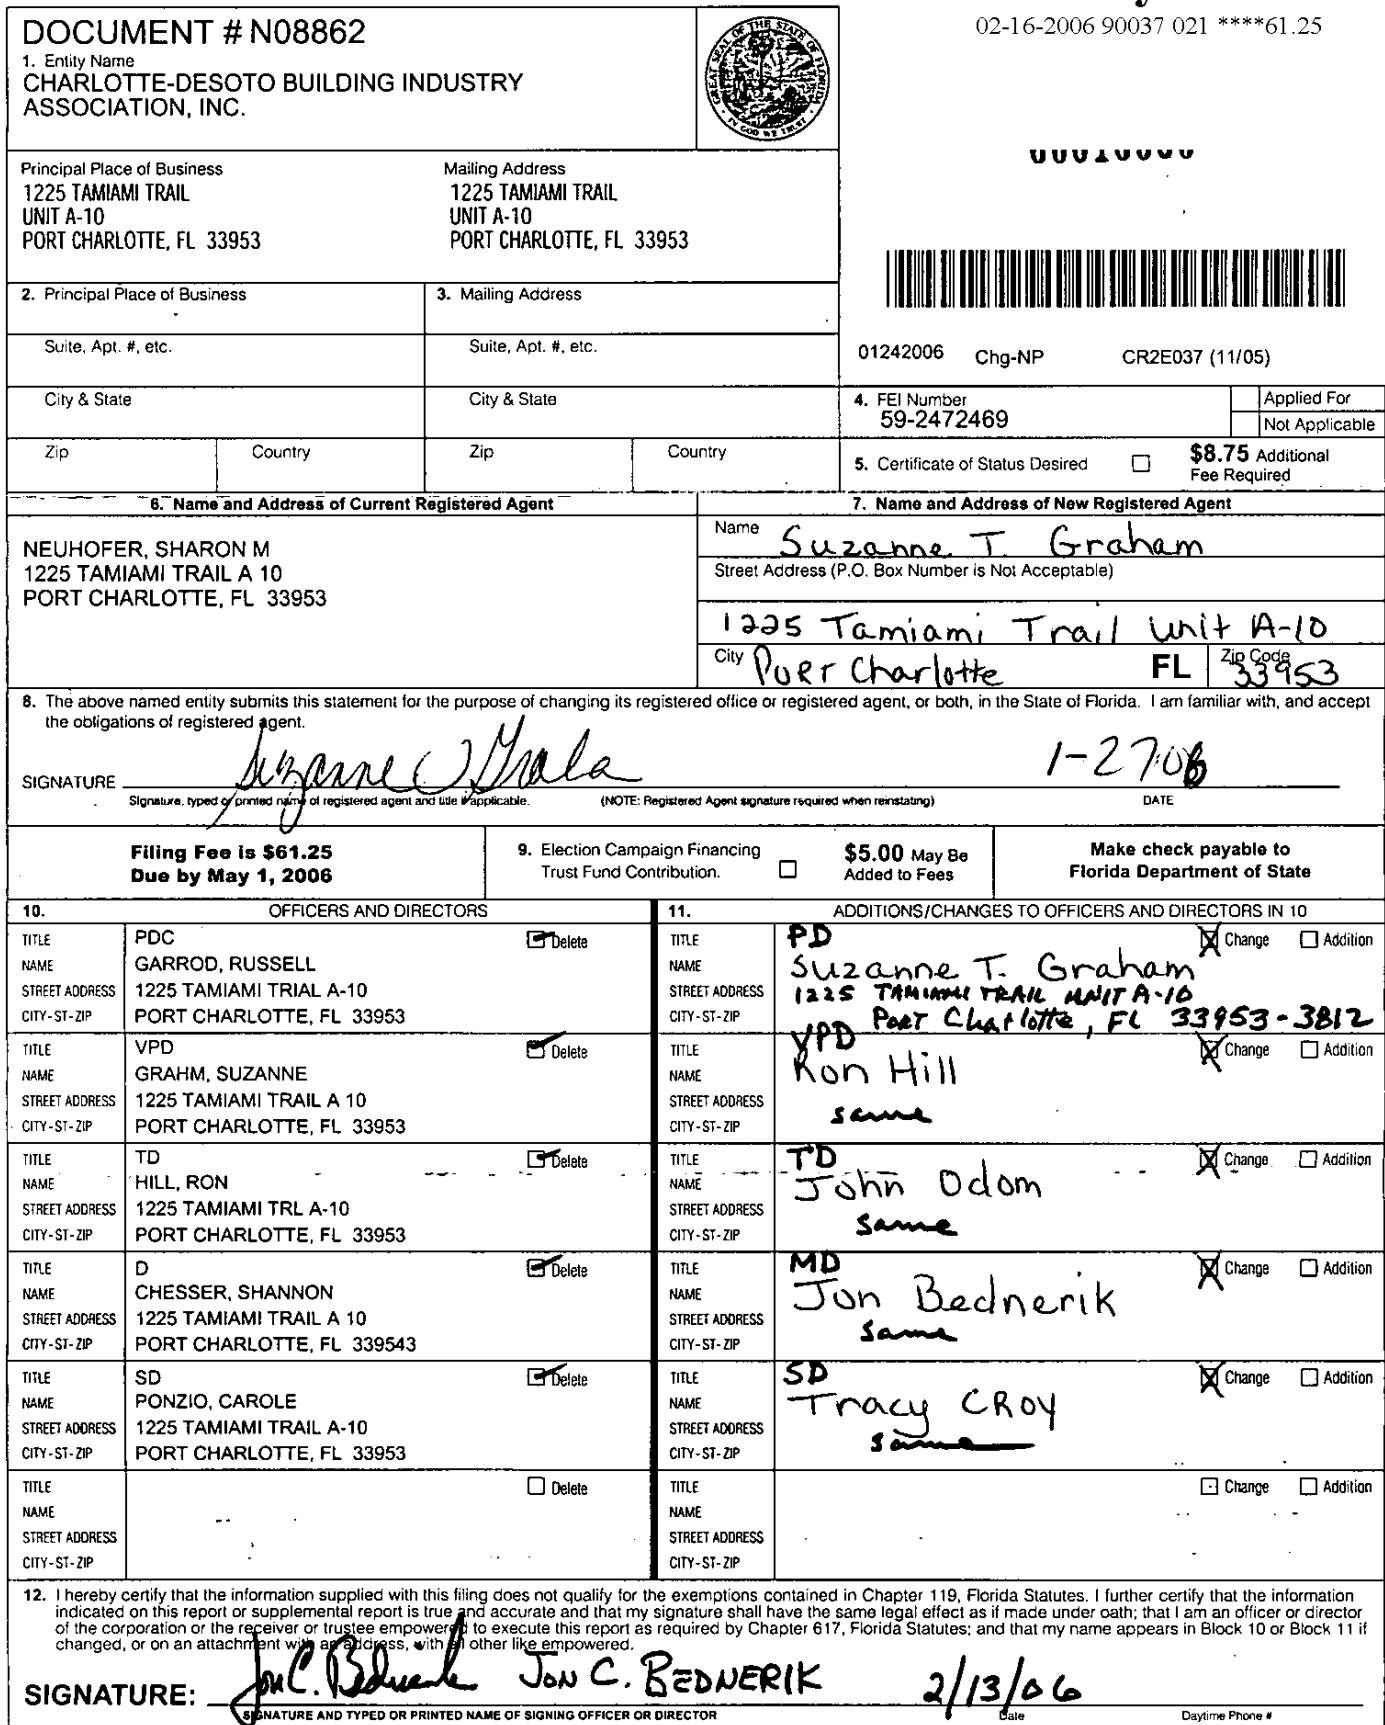 02-16-2006 90037 021 ****61.25
DOCUMENT # N08862
1. Entity Name
CHARLOTTE-DESOTO BUILDING INDUSTRY
ASSOCIATION, INC.
GREAT SEAL OF THE STATE OF FLORIDA
IN GOD WE TRUST
Principal Place of Business
1225 TAMIAMI TRAIL
UNIT A-10
PORT CHARLOTTE, FL 33953
Mailing Address
1225 TAMIAMI TRAIL
UNIT A-10
PORT CHARLOTTE, FL 33953
2. Principal Place of Business
3. Mailing Address
Suite, Apt. #, etc.
Suite, Apt. #, etc.
01242006 Chg-NP CR2E037 (11/05)
City & State
City & State
4. FEI Number
59-2472469
Applied For
Not Applicable
Zip Country
Zip Country
5. Certificate of Status Desired
$8.75 Additional
Fee Required
6. Name and Address of Current Registered Agent
NEUHOFER, SHARON M
1225 TAMIAMI TRAIL A 10
PORT CHARLOTTE, FL 33953
7. Name and Address of New Registered Agent
Name Suzanne T. Graham
Street Address (P.O. Box Number is Not Acceptable)
1225 Tamiami Trail Unit A-10
City Port Charlotte FL Zip Code 33953
8. The above named entity submits this statement for the purpose of changing its registered office or registered agent, or both, in the State of Florida. I am familiar with, and accept
the obligations of registered agent.
SIGNATURE 1-27-06
Signature, typed or printed name of registered agent and title if applicable. (NOTE: Registered Agent signature required when reinstating) DATE
Filing Fee is $61.25
Due by May 1, 2006
9. Election Campaign Financing
Trust Fund Contribution.
$5.00 May Be
Added to Fees
Make check payable to
Florida Department of State
10. OFFICERS AND DIRECTORS
11. ADDITIONS/CHANGES TO OFFICERS AND DIRECTORS IN 10
TITLE PDC Delete
NAME GARROD, RUSSELL
STREET ADDRESS 1225 TAMIAMI TRIAL A-10
CITY-ST-ZIP PORT CHARLOTTE, FL 33953
TITLE PD Change Addition
NAME Suzanne T. Graham
STREET ADDRESS 1225 TAMIAMI TRAIL UNIT A-10
CITY-ST-ZIP Port Charlotte, FL 33953-3812
TITLE VPD Delete
NAME GRAHM, SUZANNE
STREET ADDRESS 1225 TAMIAMI TRAIL A 10
CITY-ST-ZIP PORT CHARLOTTE, FL 33953
TITLE VPD Change Addition
NAME Ron Hill
STREET ADDRESS same
CITY-ST-ZIP
TITLE TD Delete
NAME HILL, RON
STREET ADDRESS 1225 TAMIAMI TRL A-10
CITY-ST-ZIP PORT CHARLOTTE, FL 33953
TITLE TD Change Addition
NAME John Odom
STREET ADDRESS same
CITY-ST-ZIP
TITLE D Delete
NAME CHESSER, SHANNON
STREET ADDRESS 1225 TAMIAMI TRAIL A 10
CITY-ST-ZIP PORT CHARLOTTE, FL 339543
TITLE MD Change Addition
NAME Jon Bednerik
STREET ADDRESS same
CITY-ST-ZIP
TITLE SD Delete
NAME PONZIO, CAROLE
STREET ADDRESS 1225 TAMIAMI TRAIL A-10
CITY-ST-ZIP PORT CHARLOTTE, FL 33953
TITLE SD Change Addition
NAME Tracy CRoy
STREET ADDRESS same
CITY-ST-ZIP
TITLE Delete
NAME
STREET ADDRESS
CITY-ST-ZIP
TITLE Change Addition
NAME
STREET ADDRESS
CITY-ST-ZIP
12. I hereby certify that the information supplied with this filing does not qualify for the exemptions contained in Chapter 119, Florida Statutes. I further certify that the information
indicated on this report or supplemental report is true and accurate and that my signature shall have the same legal effect as if made under oath; that I am an officer or director
of the corporation or the receiver or trustee empowered to execute this report as required by Chapter 617, Florida Statutes; and that my name appears in Block 10 or Block 11 if
changed, or on an attachment with an address, with all other like empowered.
SIGNATURE: Jon C. Bednerik JON C. BEDNERIK 2/13/06
SIGNATURE AND TYPED OR PRINTED NAME OF SIGNING OFFICER OR DIRECTOR Date Daytime Phone #